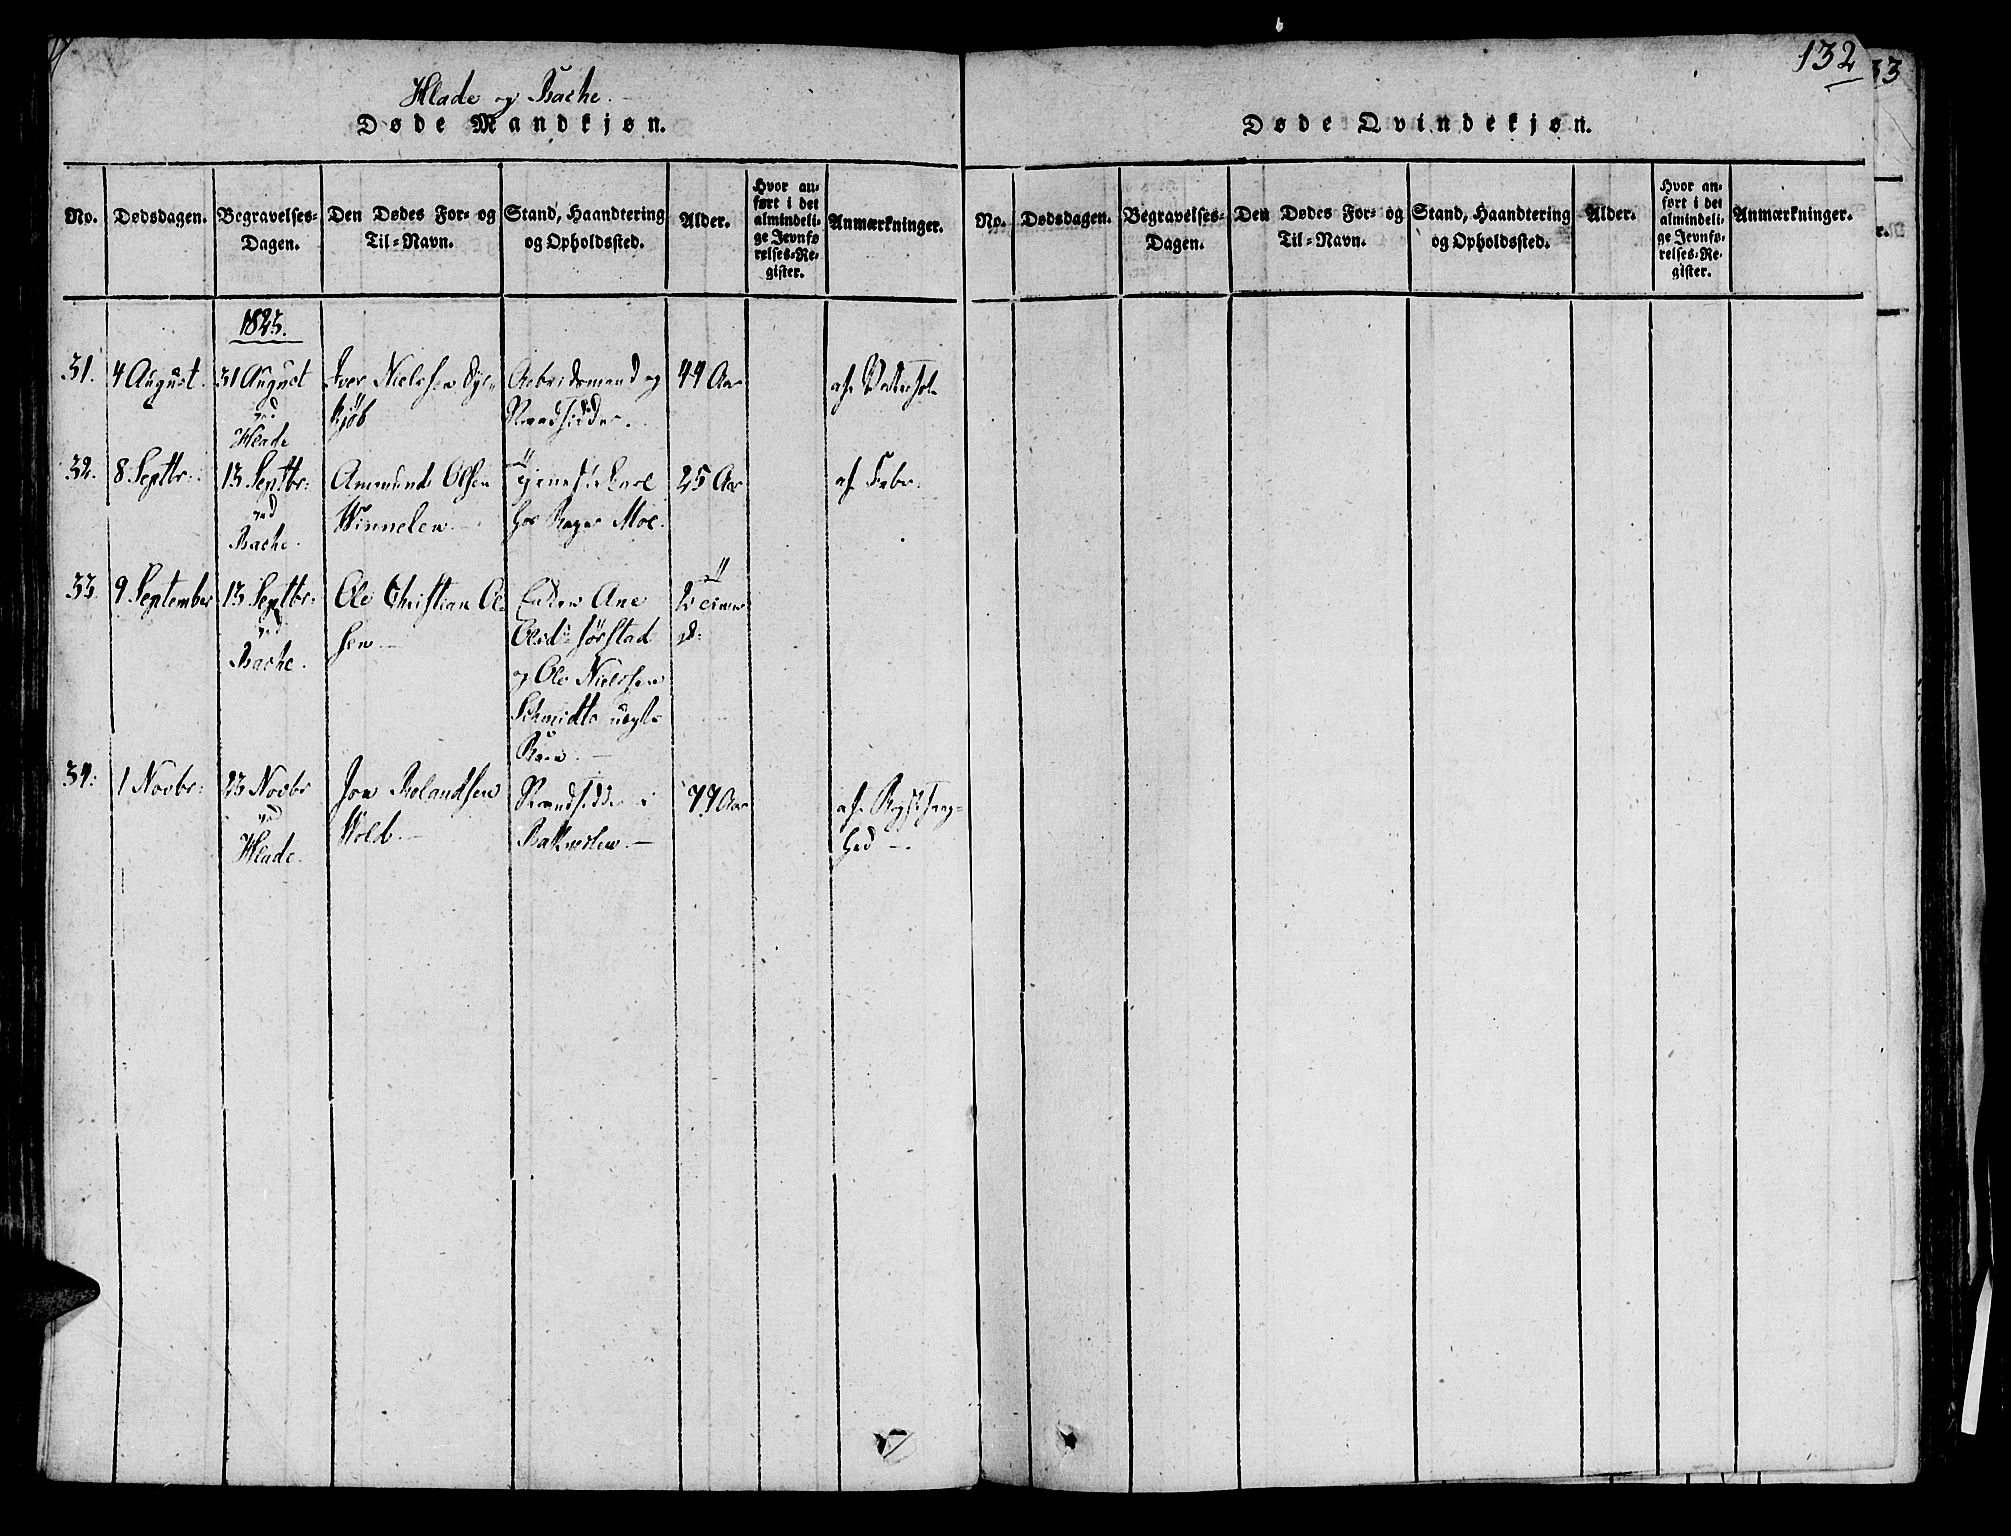 132
33
Hlade og Bache.
Døde Mandkjøn.
No.
Dødsdagen.
Begravelses-
Dagen.
Den Dødes For- og
Til-Navn.
Stand, Haandtering
og Opholdssted.
Alder.
Hvor an-
ført i det
almindeli-
ge Jevnfø-
relses-Re-
gister.
Anmærkninger.
1823.
31.
4 August.
31 August
ved
Hlade
Iver Nielssen
kjøb
Arbeidsmand og
Strandsidder.
44 Aar
af
32.
8 Septbr:
13 Septbr:
ved
Bache.
Ammund Olsen
Winnelen
Tjenestekarl
hos Moe.
25 Aar
af Feber.
33.
9 September
13 Septbr:
ved
Bache.
Ole Christian Ol-
sen
Enken Ane
Olsd:
og Ole Nielssen
Schmidts uægte
Barn.
34:
1 Novbr:
23 Novbr
ved
Hlade.
Jon Rolandsen
Wold.
Strandsidder i
Bakveslen.
77 Aar
af
hed
Døde Qvindekjøn.
No.
Dødsdagen.
Begravelses-
Dagen.
Den Dødes For- og
Til-Navn.
Stand, Haandtering
og Opholdssted.
Alder.
Hvor an-
ført i det
almindeli-
ge Jevnfø-
relses-Re-
gister.
Anmærkninger.